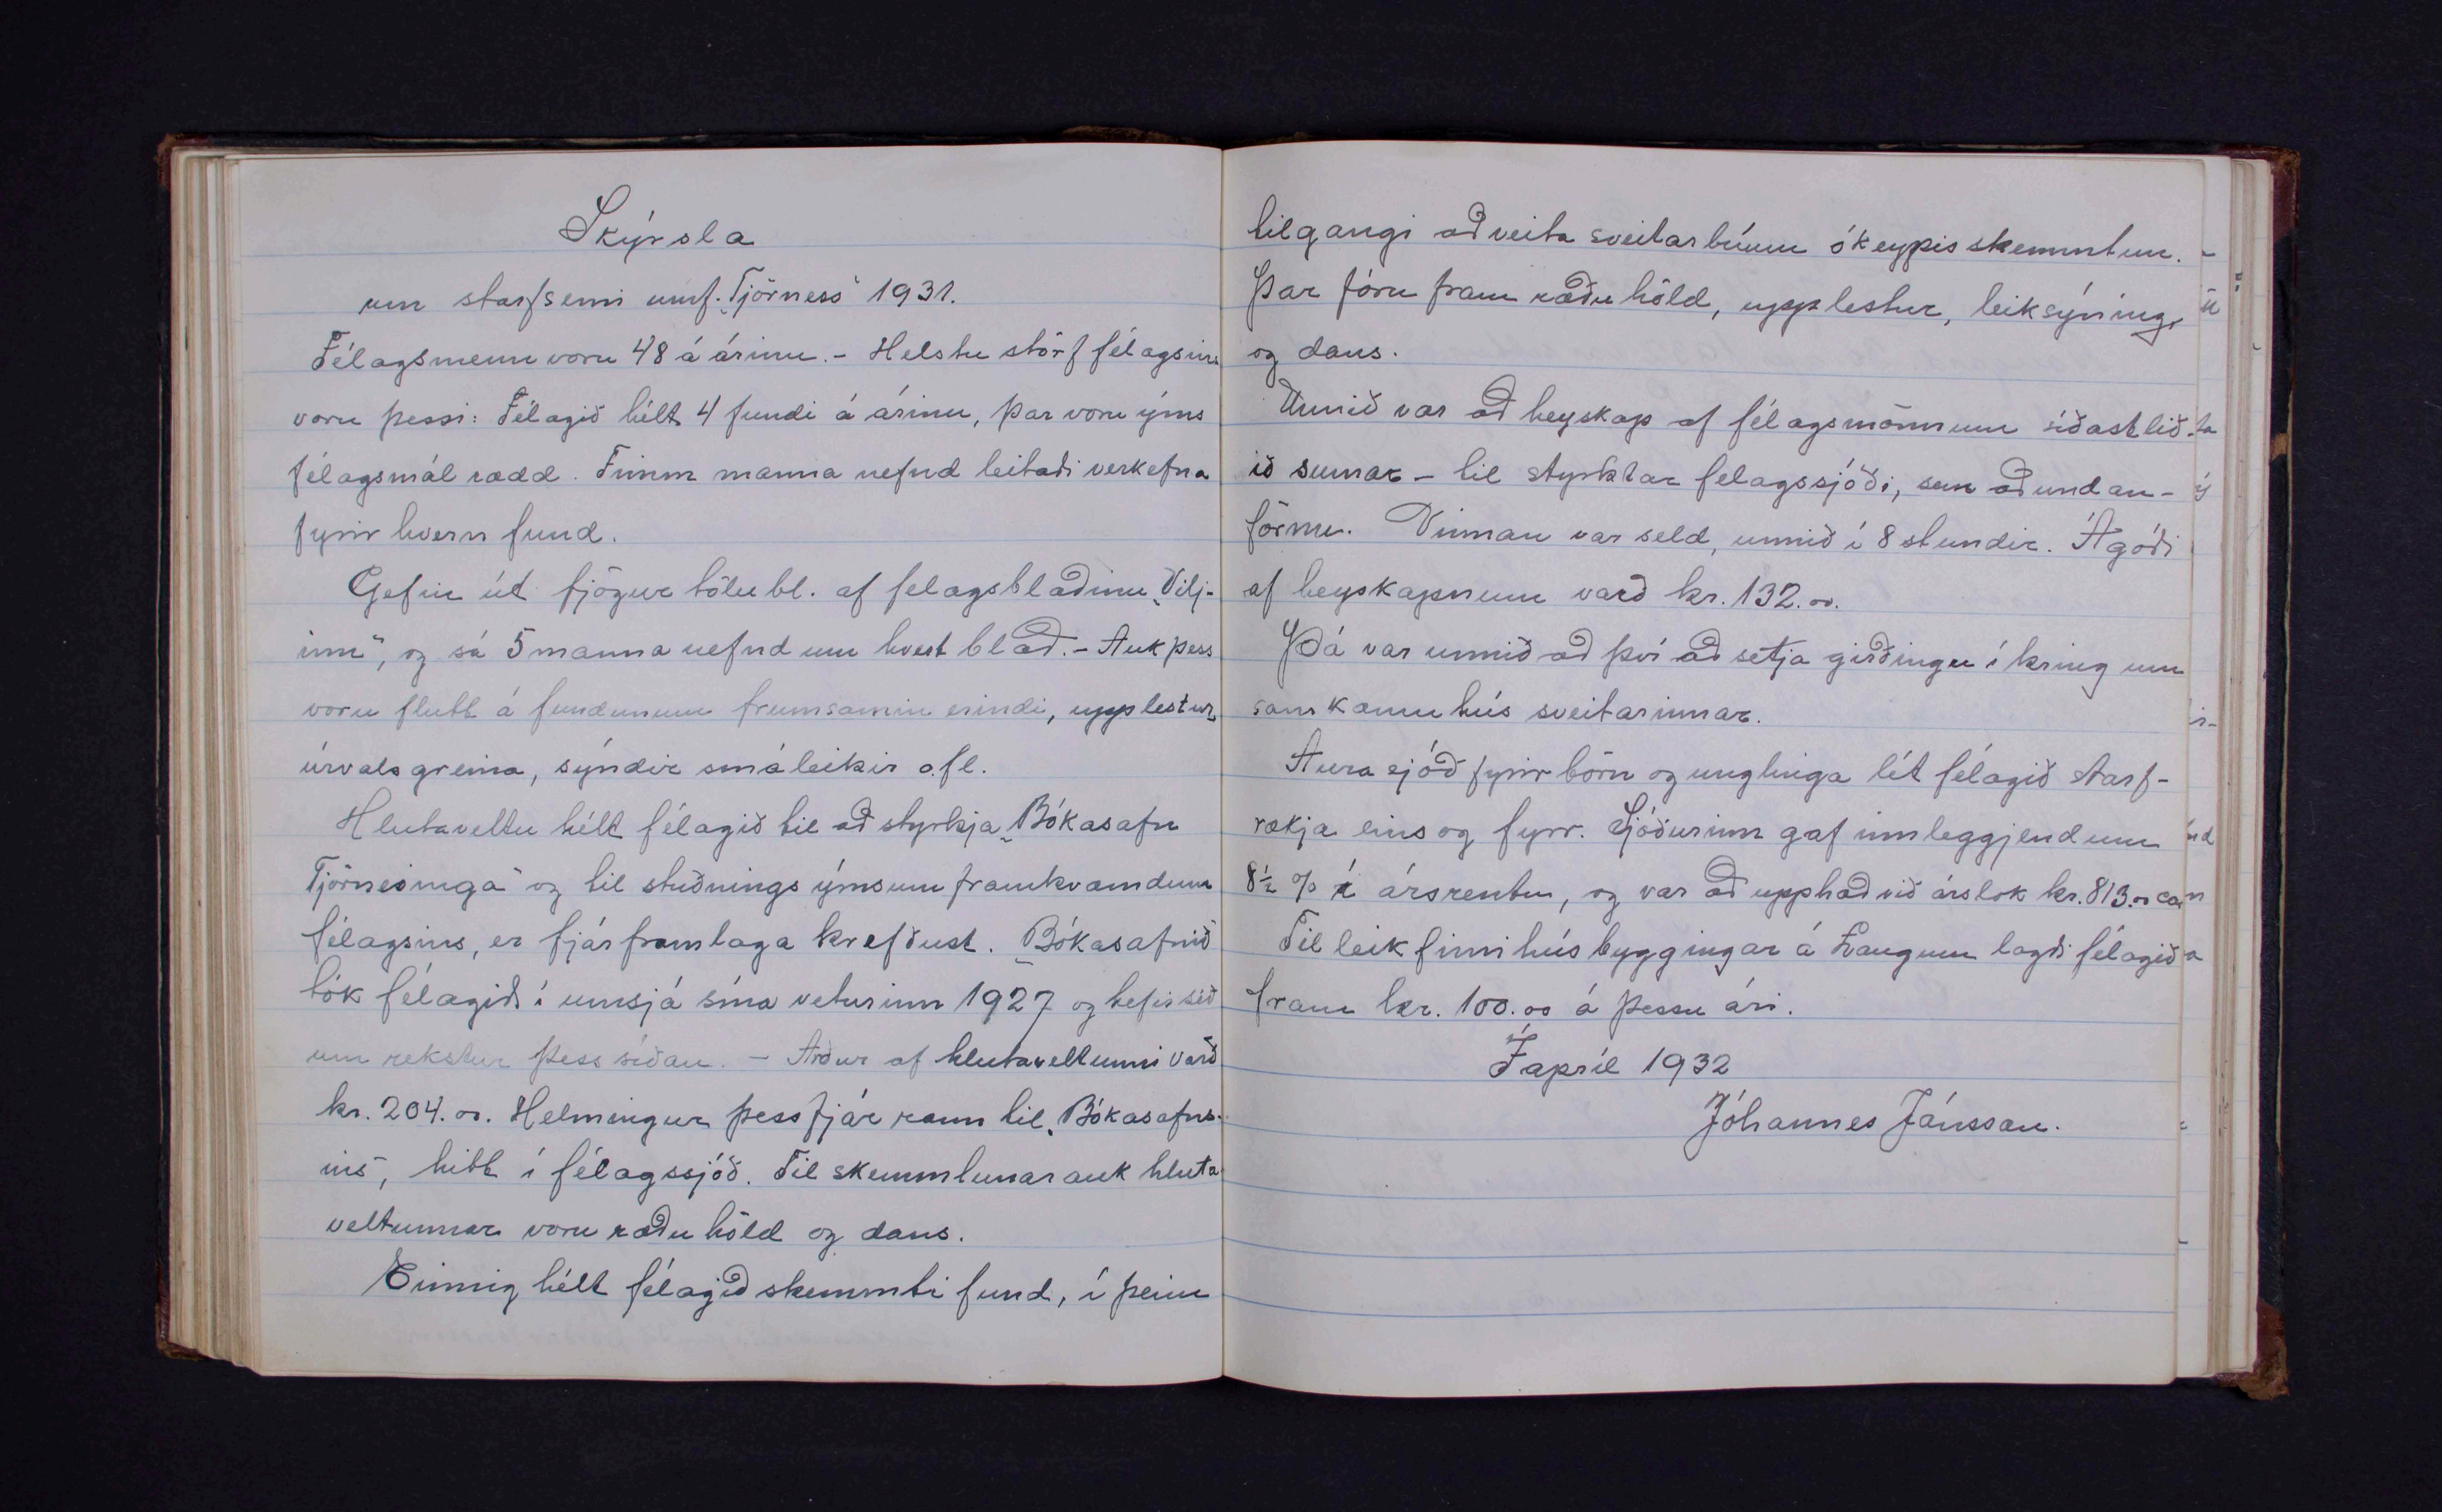 Skýrsla
um starfsemi umf. „Tjörness" 1931.
Félagsmenn voru 48 á árinu. - Helstu störf félagsins
voru þessi: Félagið hélt 4 fundi á árinu, þar voru ýms
félagsmál rædd. Fimm manna nefnd leitaði verkefna
fyrir hvern fund.
Gefin út fjögur tölubl. af felagsblaðinu „Vilj-
inn", og sá 5 manna nefnd um hvert blað. - Auk þess
voru flutt á fundunum frumsamin erindi, upplestur
úrvalsgreina, sýndir smáleikir o.fl.
Hlutaveltu hélt félagið til að styrkja „Bókasafn
Tjörnesinga" og til stuðnings ýmsum framkvæmdum
félagsins, er fjárframlaga krefðust. „Bókasafnið
tók félagið í umsjá sína veturinn 1927 og hefir séð
um rekstur þess síðan. - Arður af hlutaveltunni varð
kr. 204.00. Helmingur þess fjár rann til „Bókasafns-
ins", hitt í félagssjóð. Til skemmtunar auk hluta
veltunnar voru ræðuhöld og dans.
Einnig hélt félagið skemmtifund, í þeim
tilgangi að veita sveitarbúum ókeypis skemmtun.
Þar fóru fram ræðuhöld, upplestur, leiksýning,
og dans.
Unnið var að heyskap af félagsmönnum síðastlið-
ið sumar - til styrktar felagssjóði, sem að undan-
förnu. Vinnan var seld, unnið í 8 stundir. Ágóði
af heyskapnum varð kr. 132.00.
Þá var unnið að því að setja girðingu í kring um
samkomuhús sveitarinnar.
Aurasjóð fyrir börn og unglinga lét félagið starf-
rækja eins og fyrr. Sjóðurinn gaf innleggjendum
8½ % í ársrentu, og var að upphæð við árslok kr. 813.00 ca
Til leikfimihúsbyggingar á Laugum lagði félagið
fram kr. 100.00 á þessu ári.
Í apríl 1932
Jóhannes Jónsson.